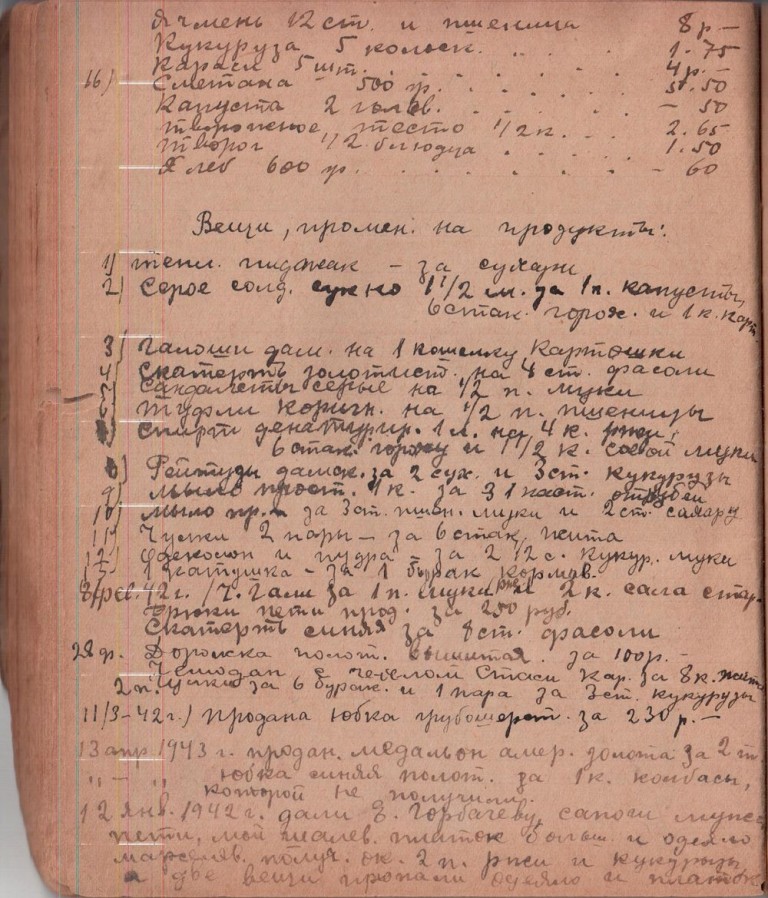 Ячмень 12 ст. и пшеница 8 р. –
Кукуруза 5 кольск. . . . . 1.75
Караси 5 шт. . . . . 4 р. –
16) Сметана – 500 гр. . . . . 5.50
Капуста 2 голов. . . . . – 50
творожное тесто 1/2 к. . . . 2.65
творог 1/2 блюдца . . . . 1.50
Хлеб 600 гр. . . . . – 60
Вещи, промен. на продукты:
1) тепл. пиджак – за сухари
2) Серое солд. сукно 1 1/2 м. за 1 п. капусты,
6 стак. горох. и 1 к. карт.
3) Галоши дам. на 1 кошелку картошки
4) Скатерть золотист. на 4 ст. фасоли
5) Сандалеты серые на 1/2 п. муки
6) туфли коричн. на 1/2 п. пшеницы
Спирт денатурир. 1 л. на 4 к. ржи,
6 стак. гороху и 1 1/2 к. соевой муки
8) Рейтузы дамск. за 2 сух. и 3 ст. кукурузы
9) мыло прост. 1 к. за 3 отрубей
10) мыло пр. за 3 ст. пшен. муки и 2 ст. сахару
11) Чулки 2 пары – за 6 стак. жита
12) Одеколон и пудра за 2 1/2 с. кукур. муки
13) катушка – за 1 бурак кормов.
8 фев. 42 г. / Т. Гали за 1 п. муки рж. и 2 к. сала стар.
Брюки пети прод. за 250 руб.
Скатерть синяя за 8 ст. фасоли
28 ф. Дорожка полот. вышитая за 100 р. –
Чемодан с чехлом Стаси Кар. за 8 к. жита
2 п. чулки за 6 бурак. и 1 пара за 3 ст. кукурузы
11/3–42 г.) Продана юбка грубошерст. за 230 р. –
13 апр. 1943 г. продан. медальон амер. золота за 2 т.
„ – „ юбка синяя полот. за 1 к. колбасы,
которой не получили.
12 янв. 1942 г. дали З. Горбачеву сапоги мужс.
пети, мой шалев. платок больш. и одеяло
марселев. получ. ок. 2 п. ржи и кукурузы,
а две вещи пропали одеяло и платок